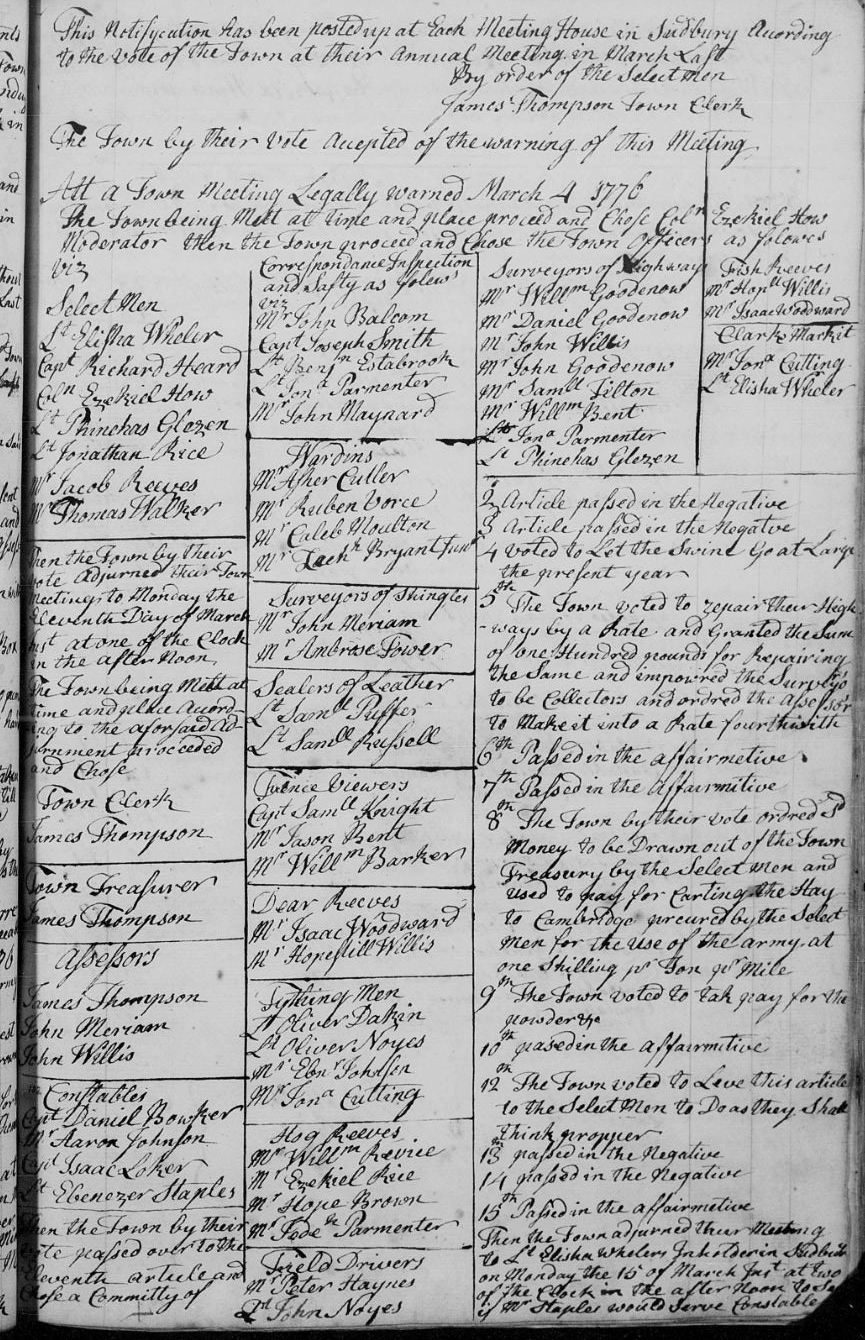 This Notifycation has been posted up at Each Meeting House in Sudbury Acording
to the vote of the Town at their Annual Meeting in March Last
By order of the Select men
James Thompson Town Clerk
The Town by their vote Accepted of the warning of this Meeting
Att a Town Meeting Legally warned March 4 1776
The Town being Mett at time and place proceed and Chose Coln Ezekiel How
Moderator then the Town proceed and Chose the Town Officers as folowes
viz
Select Men
Lt Elisha Wheler
Capt Richard Heard
Coln Ezekiel How
Lt Phinehas Glezen
Lt Jonathan Rice
Mr Jacob Reeves
Mr Thomas Walker
Then the Town by their
vote Adjurned their Town
Meeting to Monday the
Eleventh Day of March
Inst at one of the Clock
in the after Noon
The Town being Mett at
time and place Acord-
ing to the aforsaid Ad-
jurnment proceeded
and Chose
Town Clerk
James Thompson
Town Treasurer
James Thompson
Assessors
James Thompson
John Meriam
John Willis
Constables
Capt Daniel Bowker
Mr Aaron Johnson
Capt Isaac Loker
Lt Ebenezer Staples
Then the Town by their
vote passed over to the
Eleventh article and
Chose a Committy of
Correspondance Inspection
and Safty as folews
viz
Mr John Balcom
Capt Joseph Smith
Lt Benjn Estabrook
Lt Jona Parmenter
Mr John Maynard
Wardins
Mr Asher Cutler
Mr Ruben Vorce
Mr Caleb Moulton
Mr Zach Bryant Junr
Surveyors of Shingles
Mr John Meriam
Mr Ambrose Tower
Sealers of Leather
Lt Samll Puffer
Lt Samll Russell
Fence Viewers
Capt Samll Knight
Mr Jason Bent
Mr Willm Barker
Dear Reeves
Mr Isaac Woodward
Mr Hopestill Willis
Tything Men
Lt Oliver Dakin
Lt Oliver Noyes
Mr Ebnr Johnson
Mr Jona Cutting
Hog Reeves
Mr Willm Revice
Mr Ezekiel Rice
Mr Hope Brown
Mr Parmenter
Field Drivers
Mr Peter Haynes
Lt John Noyes
Surveyors of Highways
Mr Willm Goodenow
Mr Daniel Goodenow
Mr John Willis
Mr John Goodenow
Mr Samll Tilton
Mr Willm Bent
Lt Jona Parmenter
Lt Phinehas Glezen
Fish Reeves
Mr Hopll Willis
Mr Isaac Woodward
Clark Markit
Mr Jona Cutting
Lt Elisha Wheler
2 Article passed in the Negative
3 Article passed in the Negative
4 voted to Let the Swine Go at Large
the present year
5th The Town voted to repair their High-
-ways by a Rate and Granted the Sum
of one Hundred pounds for Repairing
the Same and empowred the Surveyors
to be Collectors and ordred the Assessors
to Make it into a Rate fourthwith
6th Passed in the affairmetive
7th Passed in the Affairmitive
8th The Town by their vote ordred Sd
Money to be Drawn out of the Town
Treasury by the Select men and
used to pay for Carting the Hay
to Cambridge precured by the Select
Men for the Use of the army at
one Shilling pr Ton pr Mile
9th The Town voted to tak pay for the
powder &c
10th pased in the affairmitive
12th The Town voted to Leve this article
to the Select Men to Do as they Shall
think propper
13th passed in the Negative
14 passed in the Negative
15th Passed in the affairmetive
Then the Town adjurned their Meeting
to Lt Elisha Whelers Inholder in Sudbury
on Monday the 15 of March Inst at two
of the Clock in the after Noon to See
if Mr Staples would Serve Constable